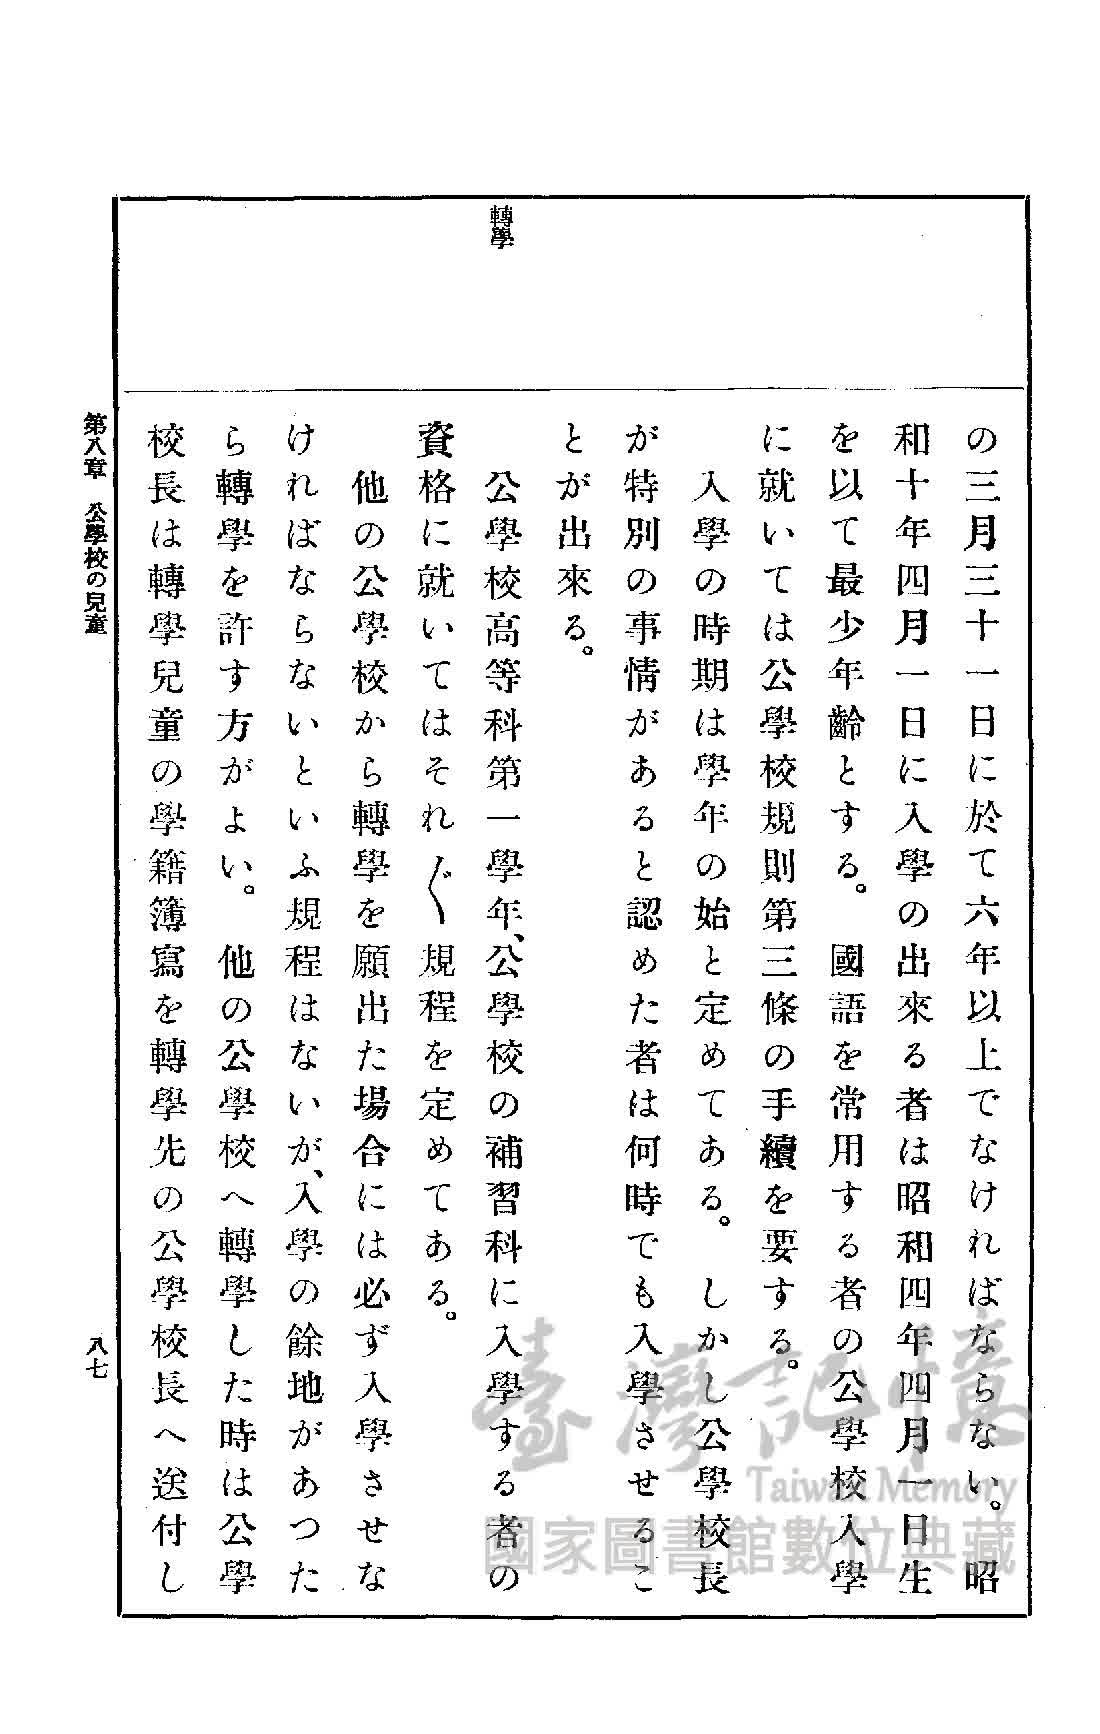 轉學
の三月三十一日に於て六年以上でなければならない。昭
和十年四月一日に入學の出來る者は昭和四年四月一日生
を以て最少年齡とする。國語を常用する者の公學校入學
に就いては公學校規則第三條の手續を要する。
入學の時期は學年の始と定めてある。しかし公學校長
が特別の事情があると認めた者は何時でも入學させるこ
とが出來る。
公學校高等科第一學年、公學校の補習科に入學する者の
資格に就いてはそれ〴〵規程を定めてある。
他の公學校から轉學を願出た場合には必ず入學させな
ければならないといふ規程はないが、入學の餘地があつた
ら轉學を許す方がよい。他の公學校へ轉學した時は公學
校長は轉學兒童の學籍簿寫を轉學先の公學校長へ送付し
第八章 公學校の兒童
八七
臺灣記憶
Taiwan Memory
國家圖書館數位典藏